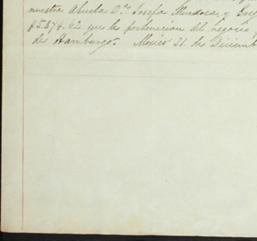 nuestra abuela Dª Josefa Mendoza, y
que le pertenecian del negocio
de Hamburgo. Mexico 31 de Diciemb